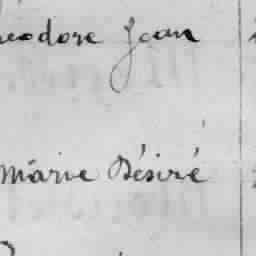 eodore Jean
Marie Désiré